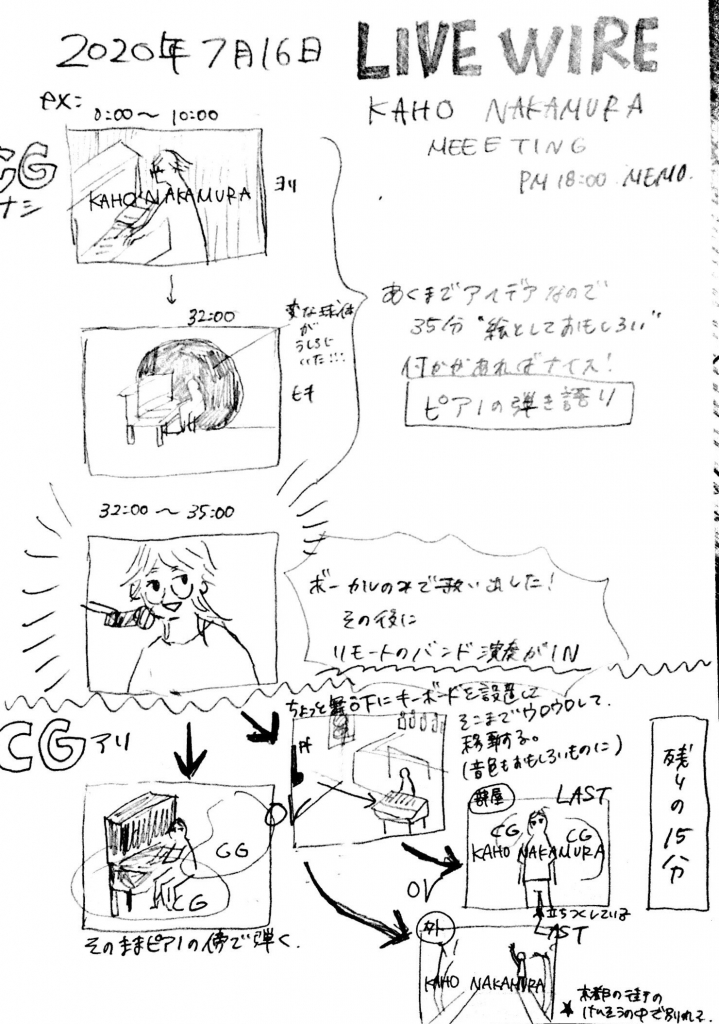 2020年7月16日
LIVE WIRE
KAHO NAKAMURA
MEEETING
PM 18:00 MEMO.
ex:
0:00〜10:00
CG
ナシ
KAHO NAKAMURA
ヨリ
32:00
変な球体
が
うしろに
いた!!!
ヒキ
あくまでアイデアなので
35分 "絵としておもしろい"
何かがあればナイス!
ピアノの弾き語り
32:00〜35:00
ボーカルのみで歌い出した!
その後に
リモートのバンド演奏がIN
CG アリ
ちょっと舞台下にキーボードを設置して
そこまでウロウロして
移動する。
(音色もおもしろいものに)
pf
OV
CG
CG
そのままピアノの傍で弾く.
部屋
LAST
CG
CG
KAHO NAKAMURA
立ちつくしている
OV
外
LAST
KAHO NAKAMURA
残りの15分
京都の街の